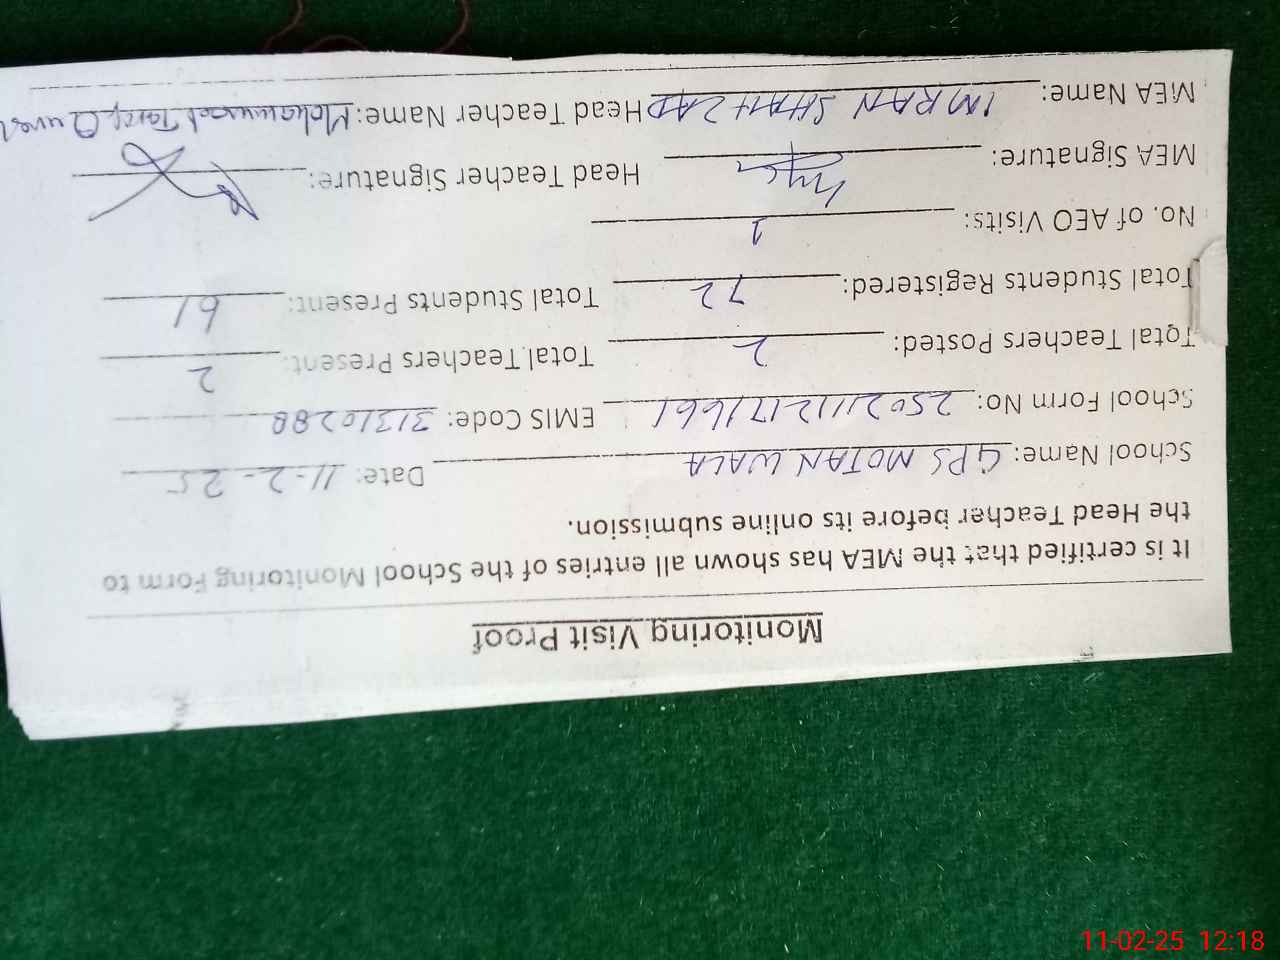 Monitoring Visit Proof
It is certified that the MEA has shown all entries of the School Monitoring Form to
the Head Teacher before its online submission.
School Name: GPS MOTAN WALA Date: 11-2-25
School Form No: 250211121711661 EMIS Code: 31310288
Total Teachers Posted: 2 Total Teachers Present: 2
Total Students Registered: 72 Total Students Present: 61
No. of AEO Visits: 1
MEA Signature: Head Teacher Signature:
MEA Name: IMRAN SHAHZAD Head Teacher Name: Mohammad Tariq
11-02-25 12:18